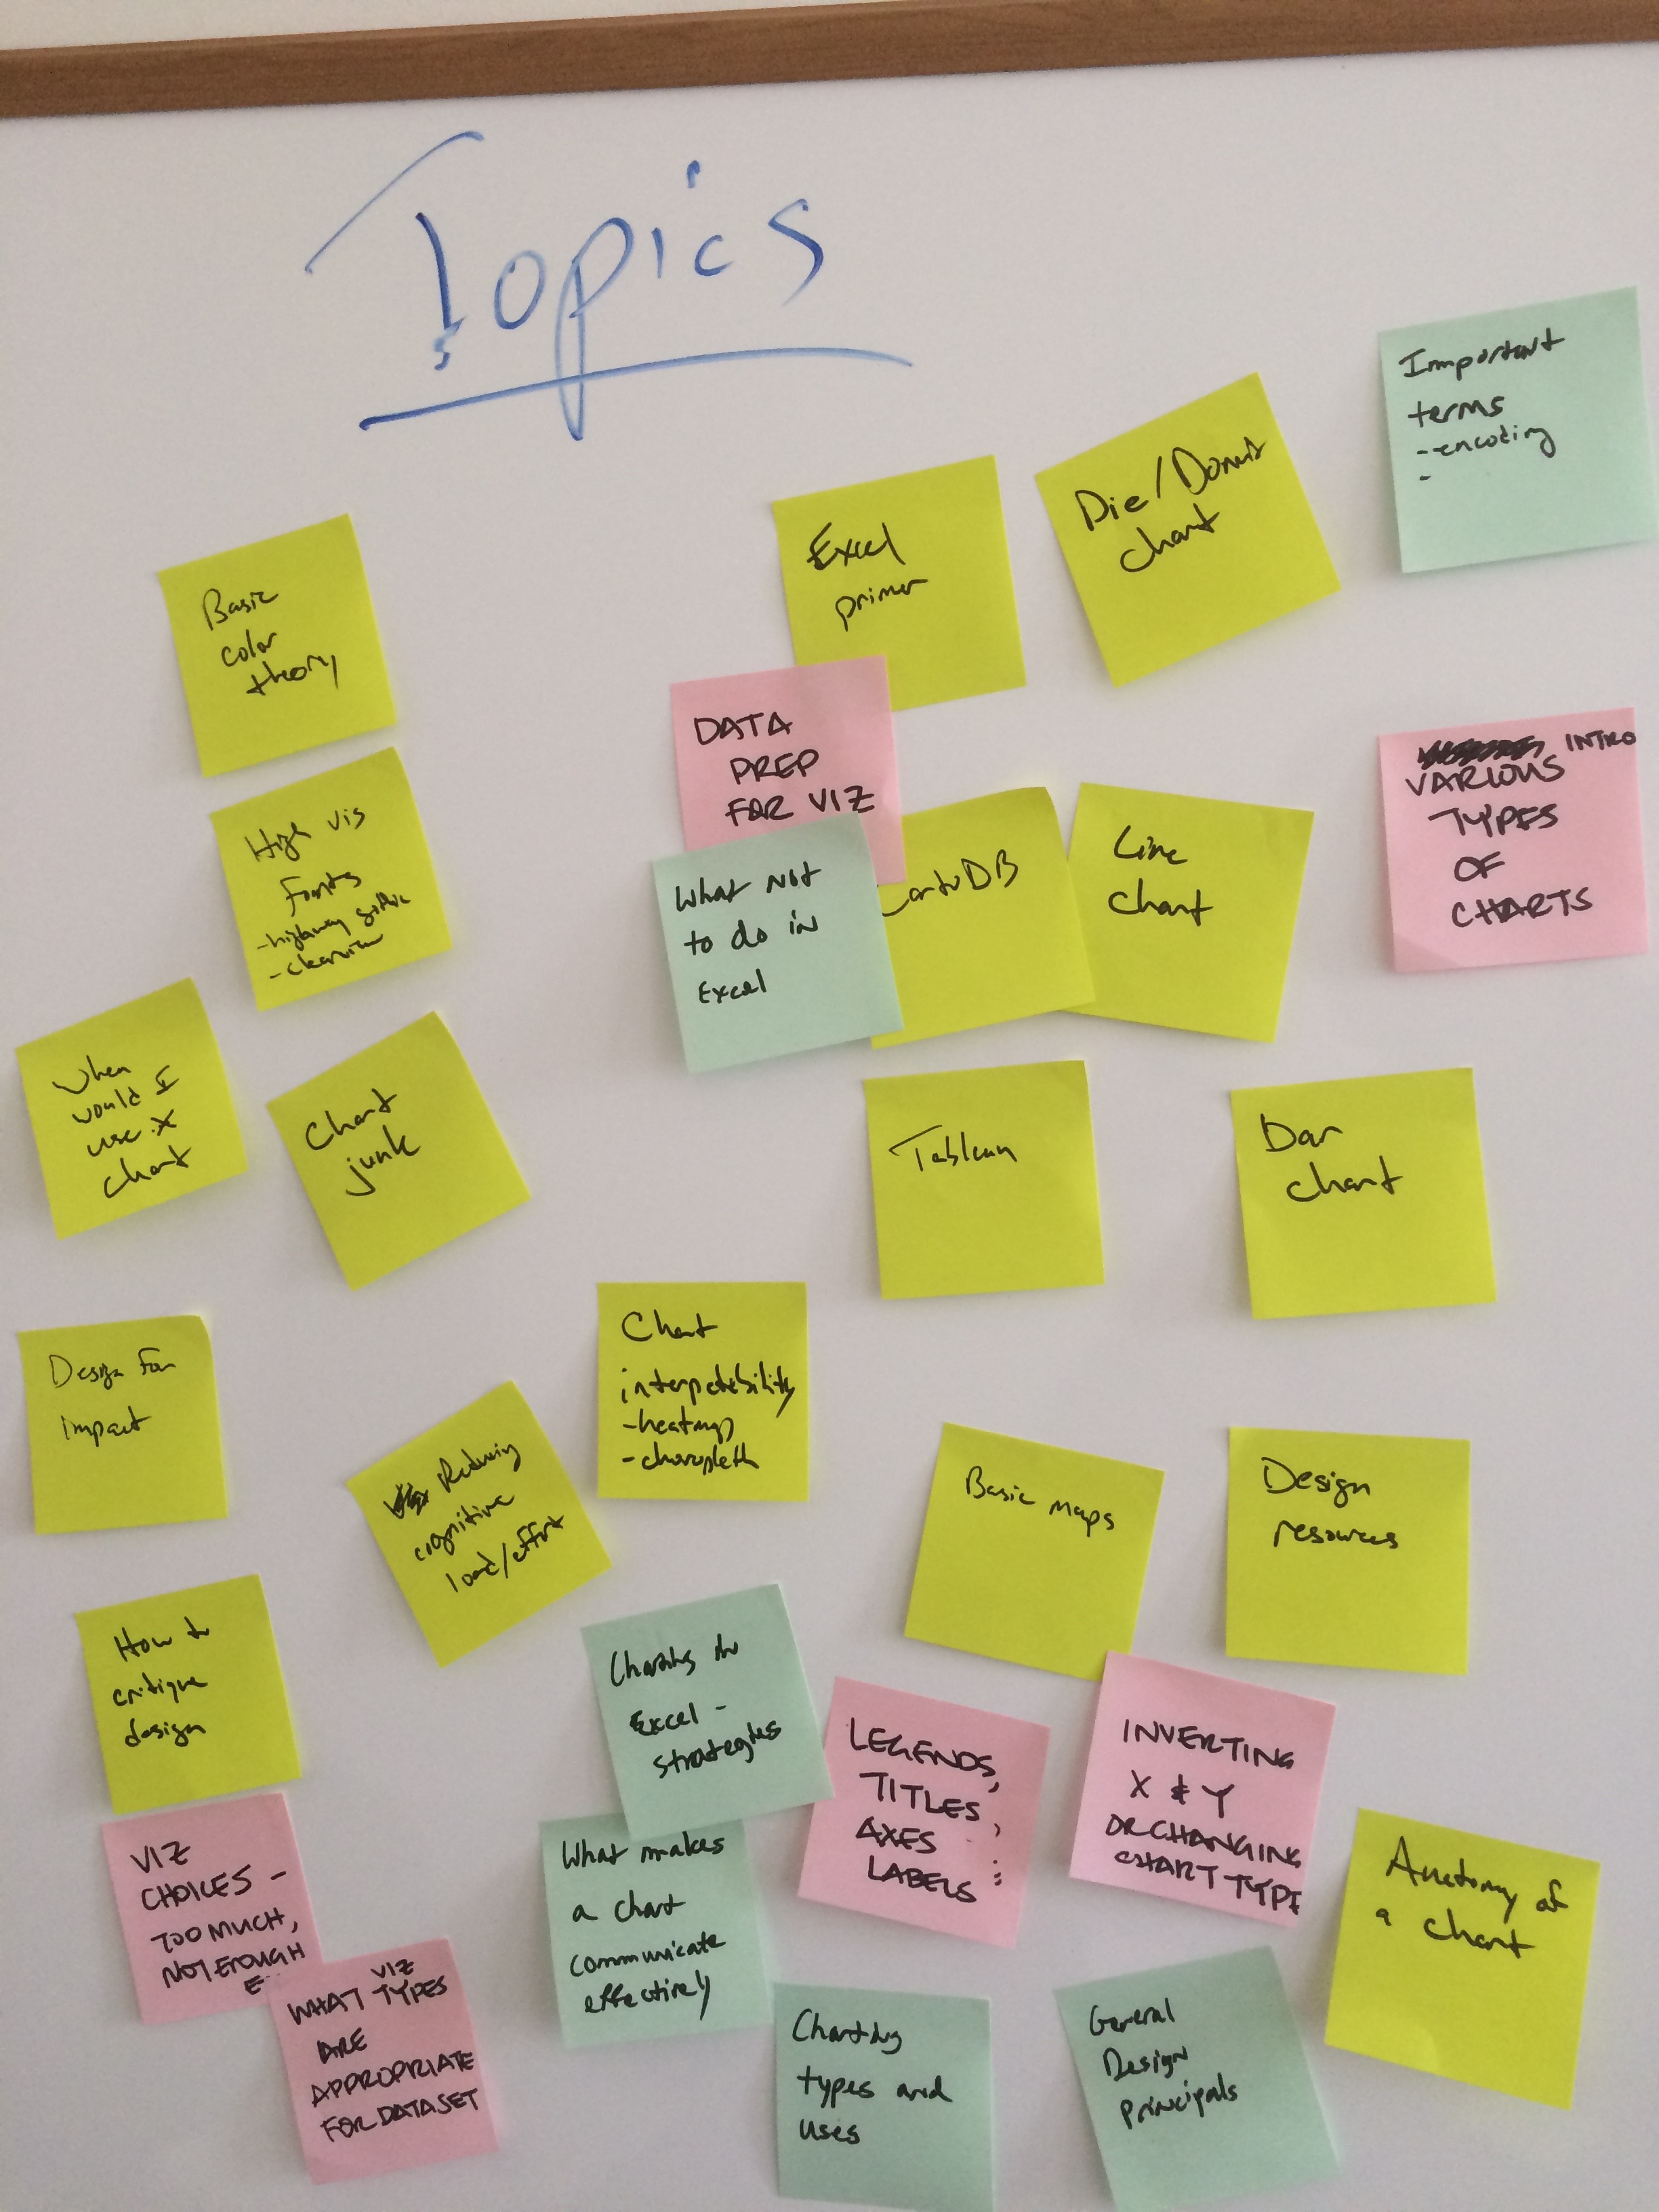 Topics
Important
terms
-encoding
-
Excel
primer
Pie/Donut
chart
Basic
color
theory
DATA
PREP
FOR VIZ
INTRO
VARIOUS
TYPES
OF
CHARTS
High vis
fonts
-highway gothic
-clearview
What not
to do in
Excel
CartoDB
Line
chart
When
would I
use X
chart
Chart
junk
Tableau
Bar
chart
Design for
impact
Chart
interpetability
-heatmap
-choropleth
Reducing
cognitive
load/effort
Basic maps
Design
resources
How to
critique
design
Charting in
Excel -
strategies
LEGENDS,
TITLES,
AXES
LABELS
INVERTING
X & Y
OR CHANGING
CHART TYPE
VIZ
CHOICES -
TOO MUCH,
NOT ENOUGH
What makes
a chart
communicate
effectively
Anatomy of
a chart
VIZ
WHAT TYPES
ARE
APPROPRIATE
FOR DATASET
Charting
types and
uses
General
Design
principals